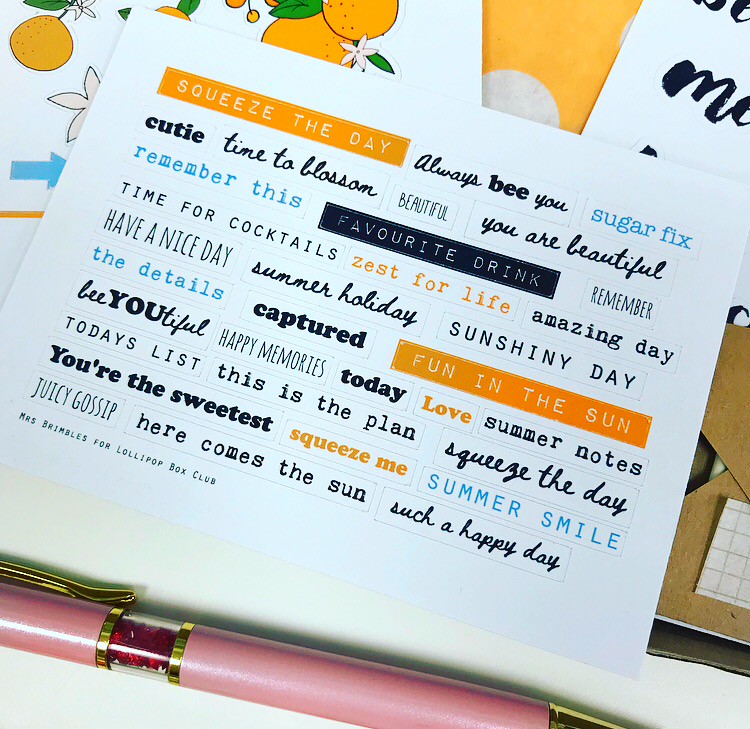 SQUEEZE THE DAY
cutie
time to blossom
Always bee you
remember this
BEAUTIFUL
sugar fix
TIME FOR COCKTAILS
FAVOURITE DRINK
you are beautiful
HAVE A NICE DAY
zest for life
REMEMBER
the details
summer holiday
amazing day
beeYOUtiful
captured
SUNSHINY DAY
TODAYS LIST
HAPPY MEMORIES
FUN IN THE SUN
You're the sweetest
this is the plan
today
Love
summer notes
JUICY GOSSIP
here comes the sun
squeeze me
squeeze the day
SUMMER SMILE
such a happy day
Mrs Brimbles for Lollipop Box Club